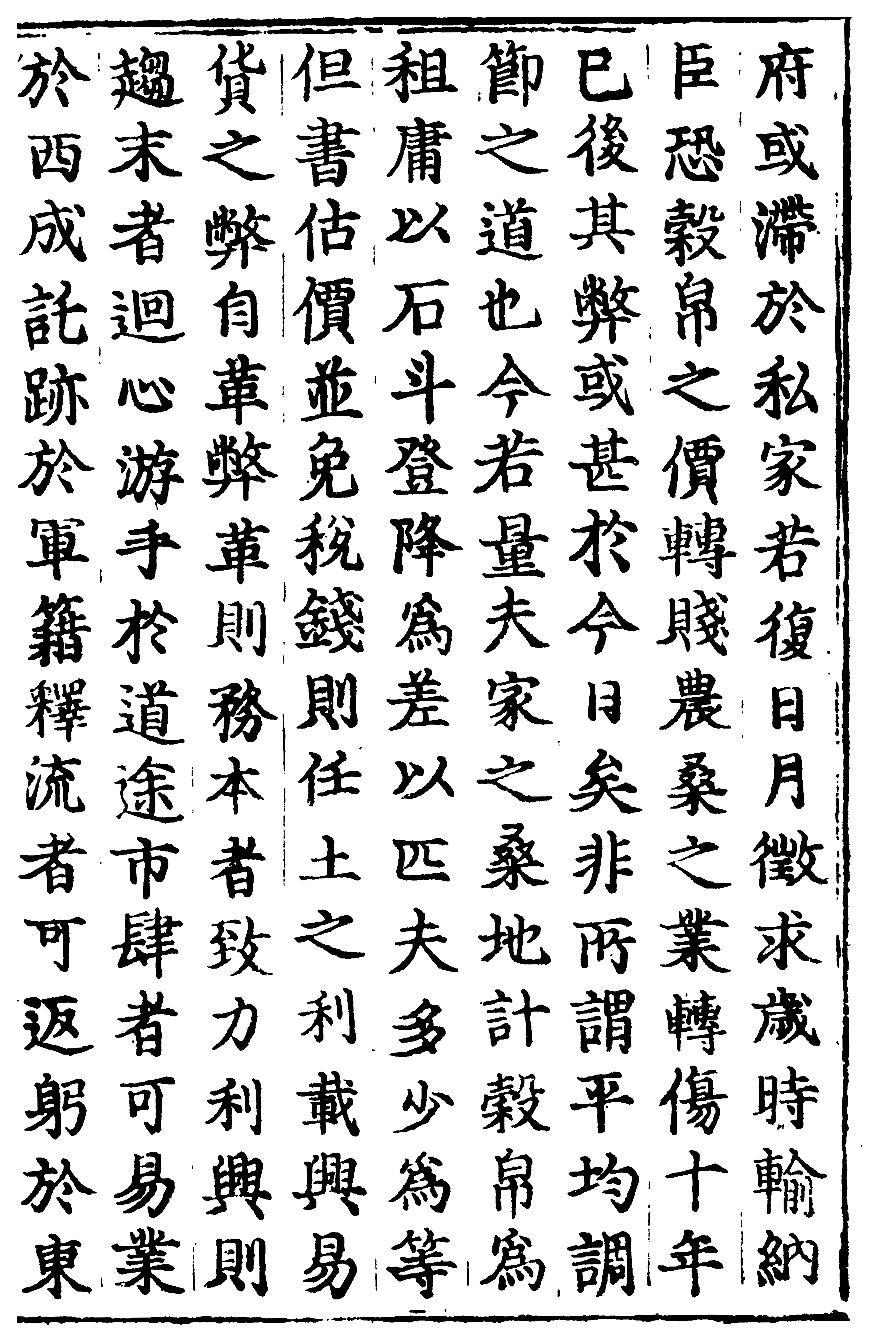 府或滯於私家若復日月徵求歲時輸納
臣恐穀帛之價轉賤農桑之業轉傷十年
已後其弊或甚於今日矣非所謂平均調
節之道也今若量夫家之桑地計穀帛爲
租庸以石斗登降爲差以匹夫多少爲等
但書估價並免稅錢則任土之利載興易
貨之弊自革弊革則務本者致力利興則
趨末者迴心游手於道途市肆者可易業
於西成託跡於軍籍釋流者可返躬於東